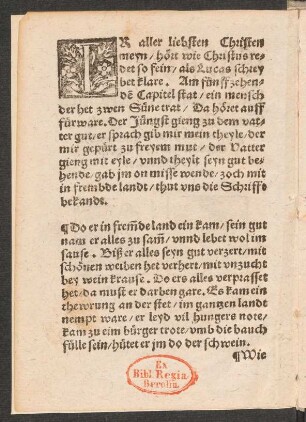 IR aller liebsten Christen
meyn / hört wie Christus re-
det so fein / als Lucas schrey
bet klare. Am fünffzehen-
de Capitel stat / ein mensch
der het zwen Süne trat / Da höret auff
für ware. Der Jüngst gieng zu dem vat-
ter gut / er sprach gib mir mein theyle / der
mir gepürt zu freyem mut / der Vatter
gieng mit eyle / vnnd theylt seyn gut be-
hende / gab jm on misse wende / zoch mit
in frembde landt / thut vns die Schrifft
bekandt.
¶ Do er in frem̃de land ein kam / sein gut
nam er alles zu sam̃ / vnnd lebet wol im
sause. Biß er alles seyn gut verzert / mit
schönen weiben het verhert / mit vnzucht
bey wein krause. Do ers alles verprasset
het / da must er darben gare. Es kam ein
thewrung an der stet / im gantzen landt
nempt ware / er leyd vil hungers note /
kam zu eim bürger trote / vmb die bauch
fülle sein / hütet er jm do der schwein.
¶ Wie
Ex
Bibl. Regia
Berolin.